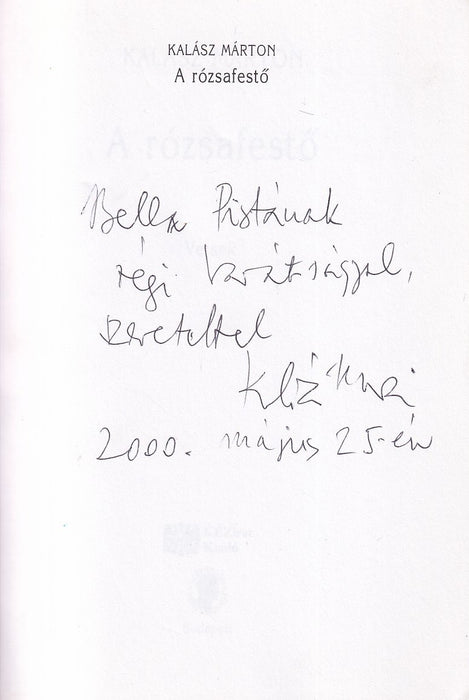 KALÁSZ MÁRTON
A rózsafestő
Bella Pistának
régi barátsággal,
szeretettel
2000. május 25-én